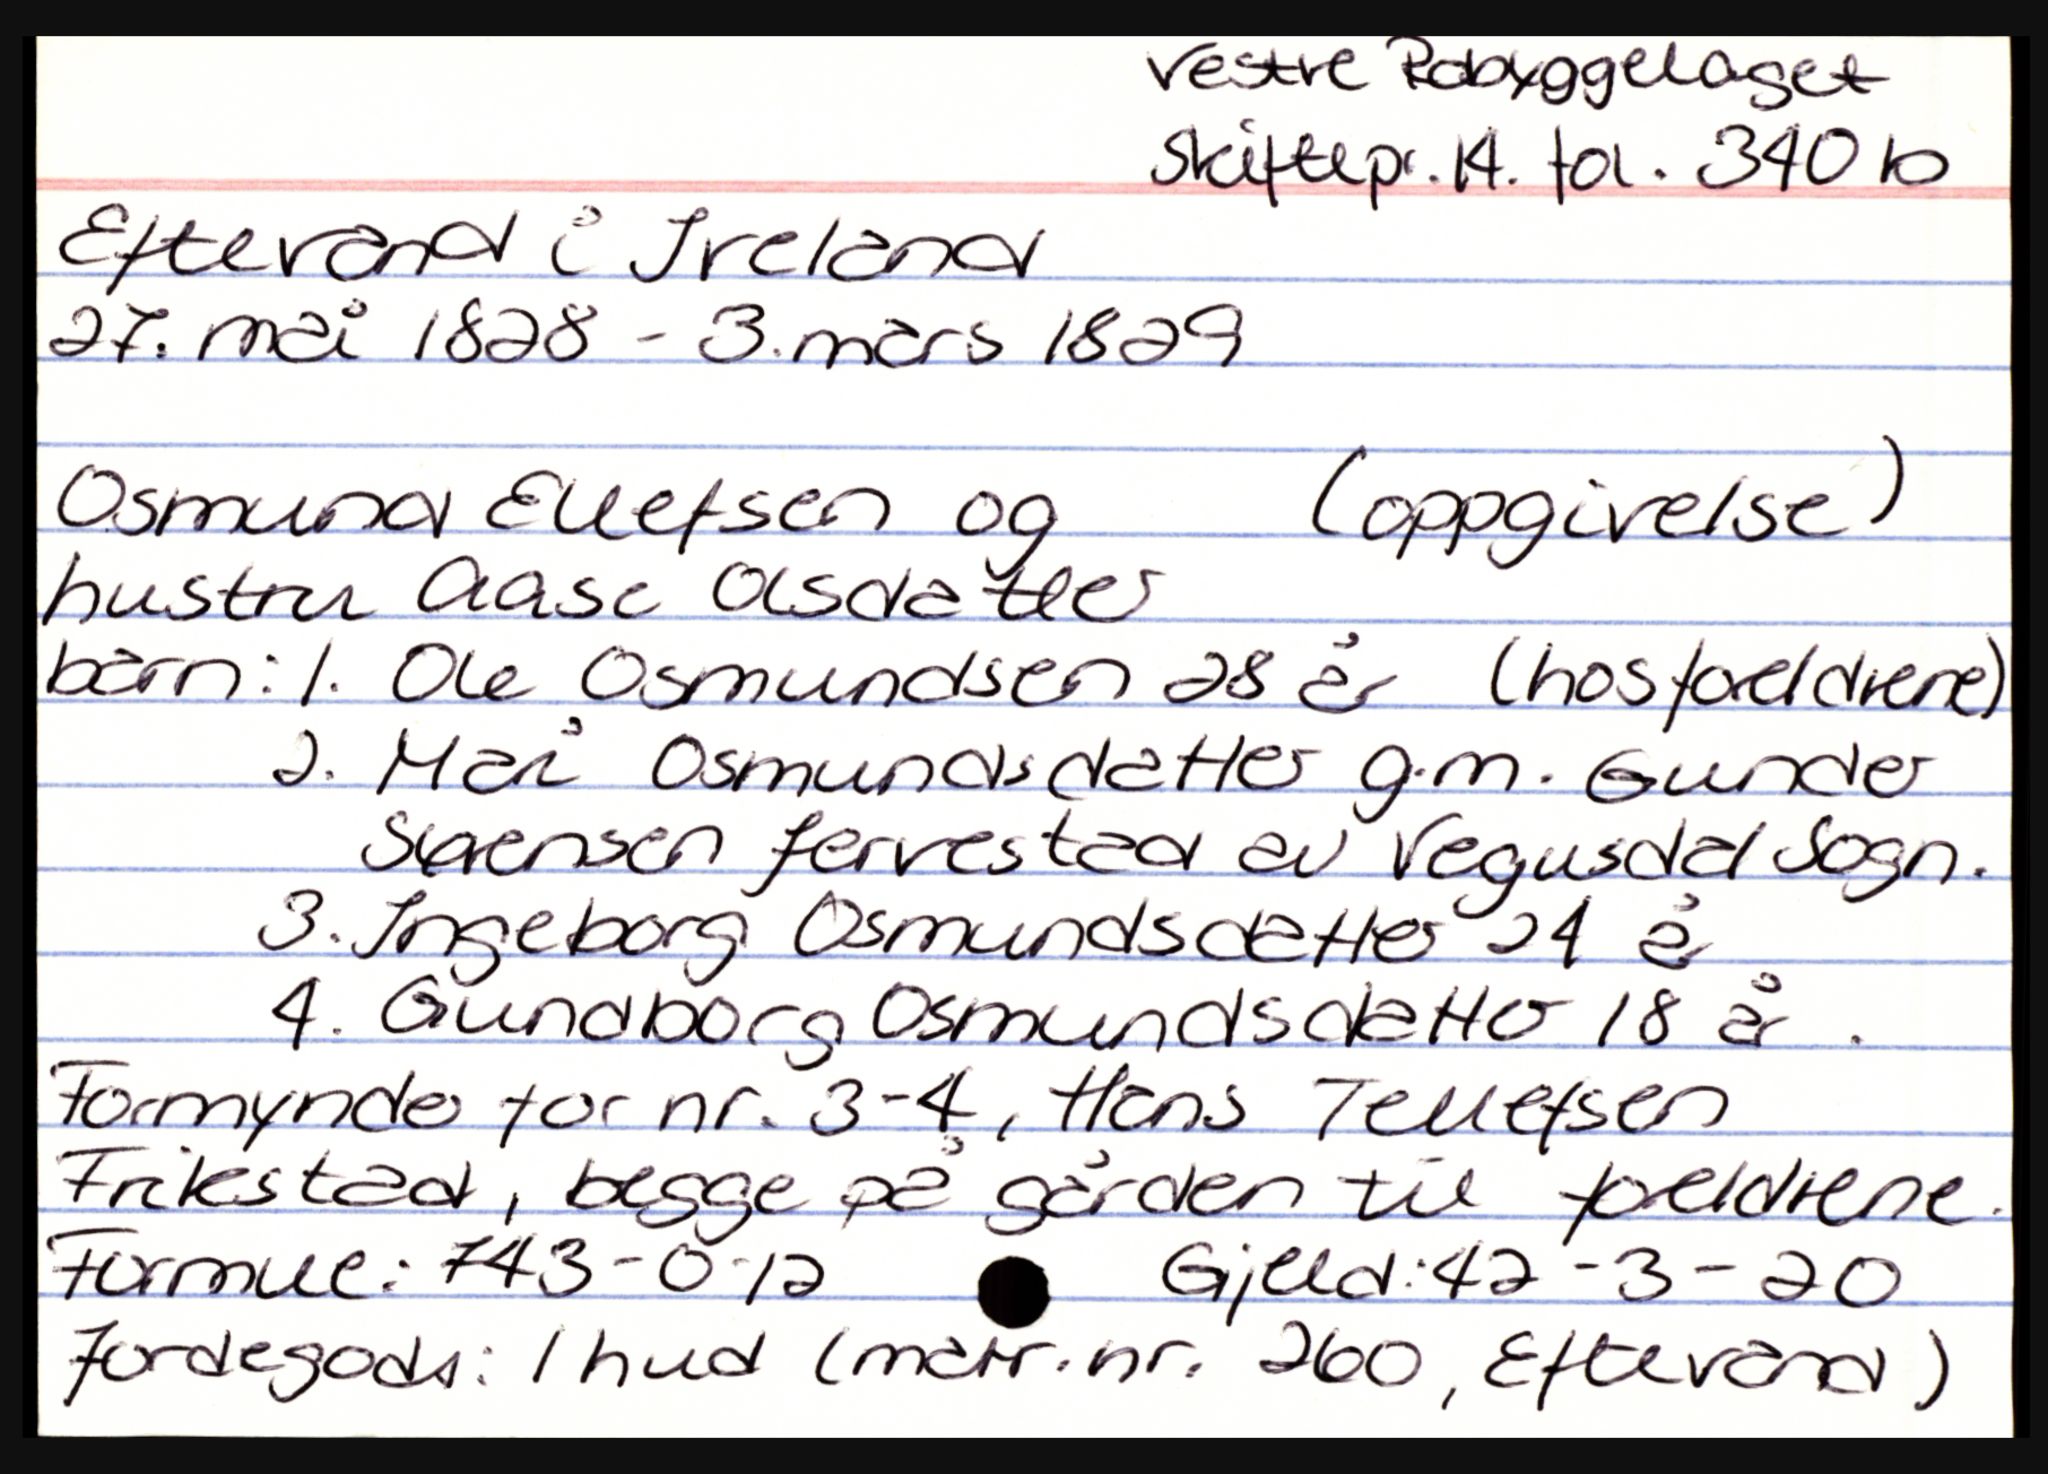 Vestre Robyggelaget
Skiftepr. 14. fol. 340 b
Eftevand i Ireland
27. mai 1828 - 3. mars 1829
Osmund Ellefsen og (oppgivelse)
hustru Aase Olsdatter
barn: 1. Ole Osmundsen 28 år (hos foreldrene)
2. Mari Osmundsdatter g.m. Gunder
Sørensen fervestad av Vegusdal Sogn.
3. Ingeborg Osmundsdatter 24 år
4. Gundborg Osmundsdatter 18 år.
Formynder for nr. 3-4, Hans Tellefsen
Frikstad, begge på gården til foreldrene.
Formue: 743-0-12 Gjeld: 42-3-20
Jordegods: 1 hud (matr. nr. 260, Eftevand)